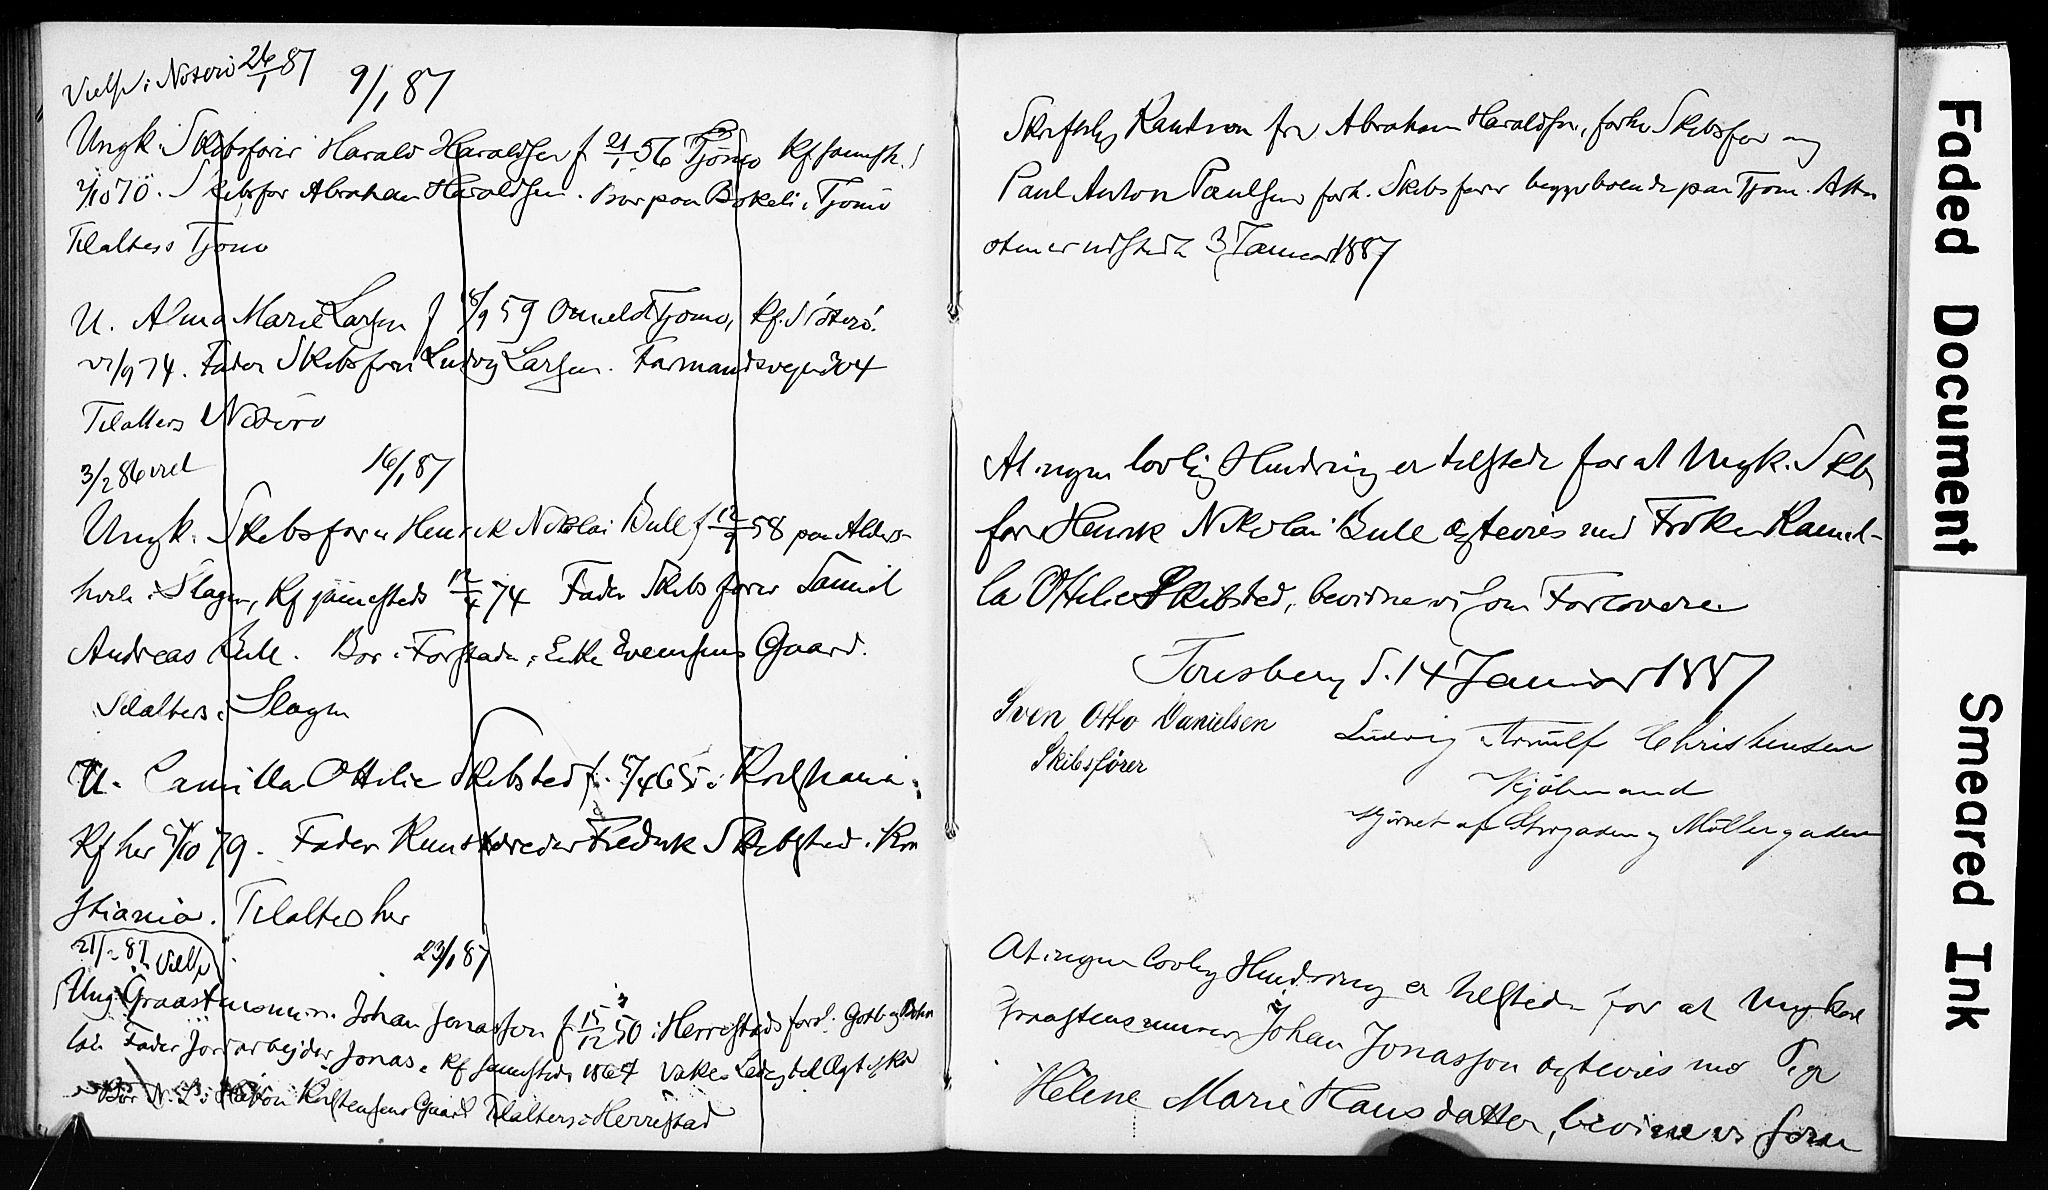 Vielse i Nøterø 26/1 87
9/1 87
Ungk. Skibsfører Harald Haraldsen f 21/1 56 Tjømø Kf samst.
2/10 70. Skibsfør Abraham Haraldsen. Bor paa Bokeli i Tjømø
Tilalters Tjømø
U. Alma Marie Larsen f 18/9 59 Tjømø, Kf. Nøterø.
/9 74. Fader Skibsfører Ludvig Larsen. Farmandsveien
Tilalters Nøterø
3/2 86
16/1 87
Ungk. Skibsfører Henrik Nikolai Bull f 12/9 58 paa
i Slagen, Kf sammesteds 12/4 74 Fader Skibsfører Samuel
Andreas Bull. Bor i Forstaden, Enke Evensens Gaard.
Tilalters i Slagen
U. Camilla Ottilie Skibsted f. 5/4 65 i Kristiania.
Kf her 5/10 79. Fader Kunstdreder Fredrik Skibsted i Kri
stiania. Tilalters her
21/2 87 Viels
23/1 87
Ung. Graastensmurer. Johan Jonasson f 15/12 50 i Herrestads
Fader Jordarbejder Jonas. Kf sammesteds 1867
Bor Kristensens Gaard Tilalters i Herrestad
Skriftlig Kaution fra Abraham Haraldsen, forhv Skibsfør og
Paul Anton Paulsen forh. Skibsfører begge boende paa Tjømø. Atte
sten er udstedt 3 Januar 1887
At ingen lovlig Hindring er tilstede for at Ungk. Skibs
før Henrik Nikolai Bull ægtevies med Frøken Kamil-
la Ottilie Skibsted, bevidne vi som Forlovere.
Tønsberg d. 14 Januar 1887
Sven Otto Danielsen
Skibsfører
Ludvig Arnulf Christensen
Kjøbmand
Hjørnet af Storgaden og Møllergaden
At ingen lovlig Hindring er tilstede for at Ungkarl
Graastensmurer Johan Jonasson ægtevies med Pige
Helene Marie Hansdatter, bevidne vi som
Faded Document
Smeared Ink